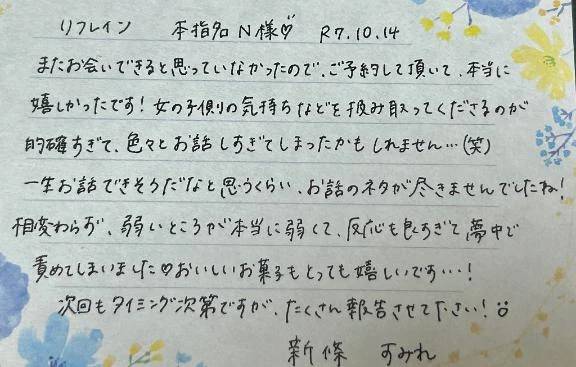 リフレイン 本指名 N様♡ R7.10.14
またお会いできると思っていなかったので、ご予約して頂いて、本当に
嬉しかったです！女の子側の気持ちなどを汲み取ってくださるのが
的確すぎて、色々とお話しすぎてしまったかもしれません…(笑)
一生お話できそうだなと思うくらい、お話のネタが尽きませんでしたね！
相変わらず、弱いところが本当に弱くて、反応も良すぎて夢中で
責めてしまいました♡おいしいお菓子もとっても嬉しいです…！
次回もタイミング次第ですが、たくさん報告させて下さい！☺
新條 すみれ